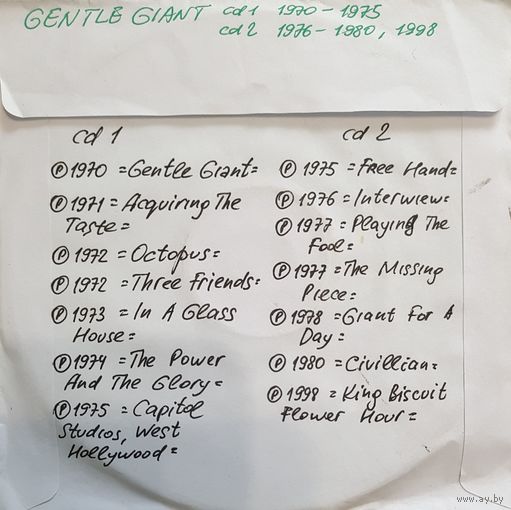 GENTLE GIANT cd1 1970-1975
cd2 1976-1980, 1998
cd 1
℗ 1970 =Gentle Giant=
℗ 1971 = Acquiring The
Taste =
℗ 1972 = Octopus=
℗ 1972 = Three Friends=
℗ 1973 = In A Glass
House =
℗ 1974 = The Power
And The Glory =
℗ 1975 = Capitol
Studios, West
Hollywood =
cd 2
℗ 1975 = Free Hand=
℗ 1976 = Interwiew=
℗ 1977 = Playing The
Fool=
℗ 1977 = The Missing
Piece=
℗ 1978 = Giant For A
Day =
℗ 1980 = Civillian=
℗ 1998 = King Biscuit
Flower Hour =
www.ay.by